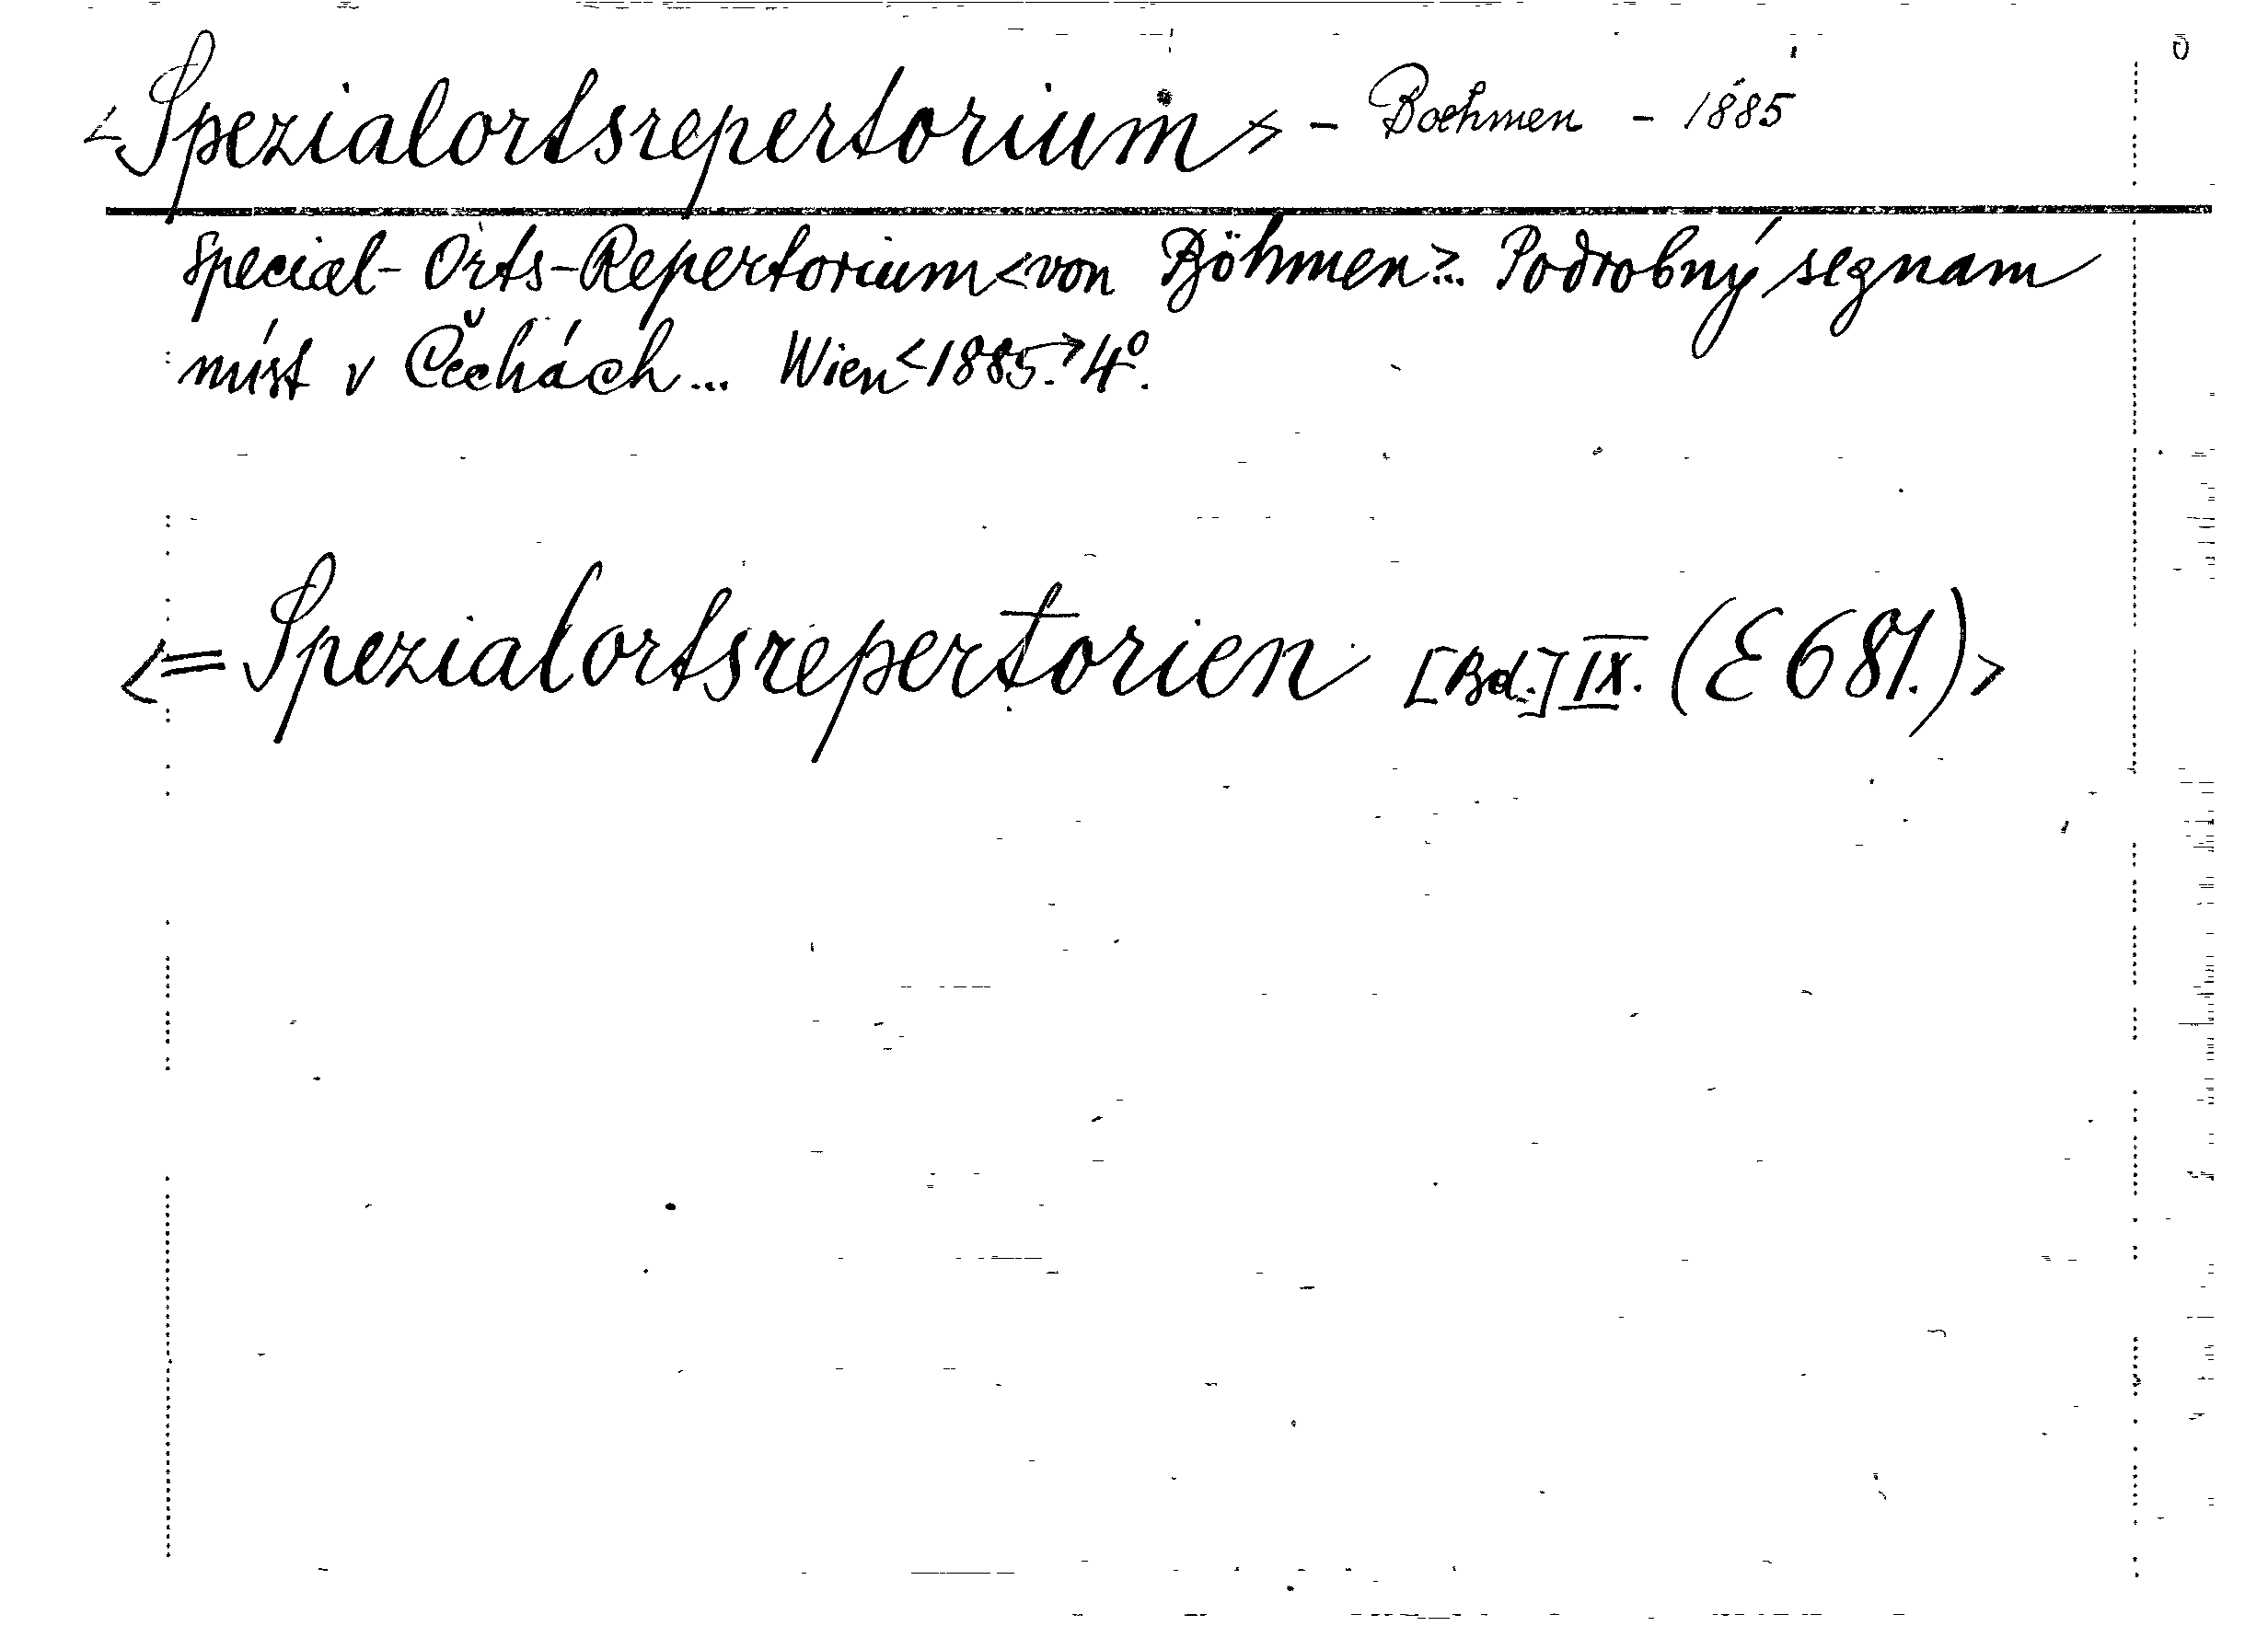 <Spezialortsrepertorium> - Boehmen - 1885
Special-Orts-Repertorium <von Böhmen>... Podrobný segnam
míst v Čechách... Wien <1885.> 4º.
<= Spezialortsrepertorien [Bd.] IX. (E 681.)>